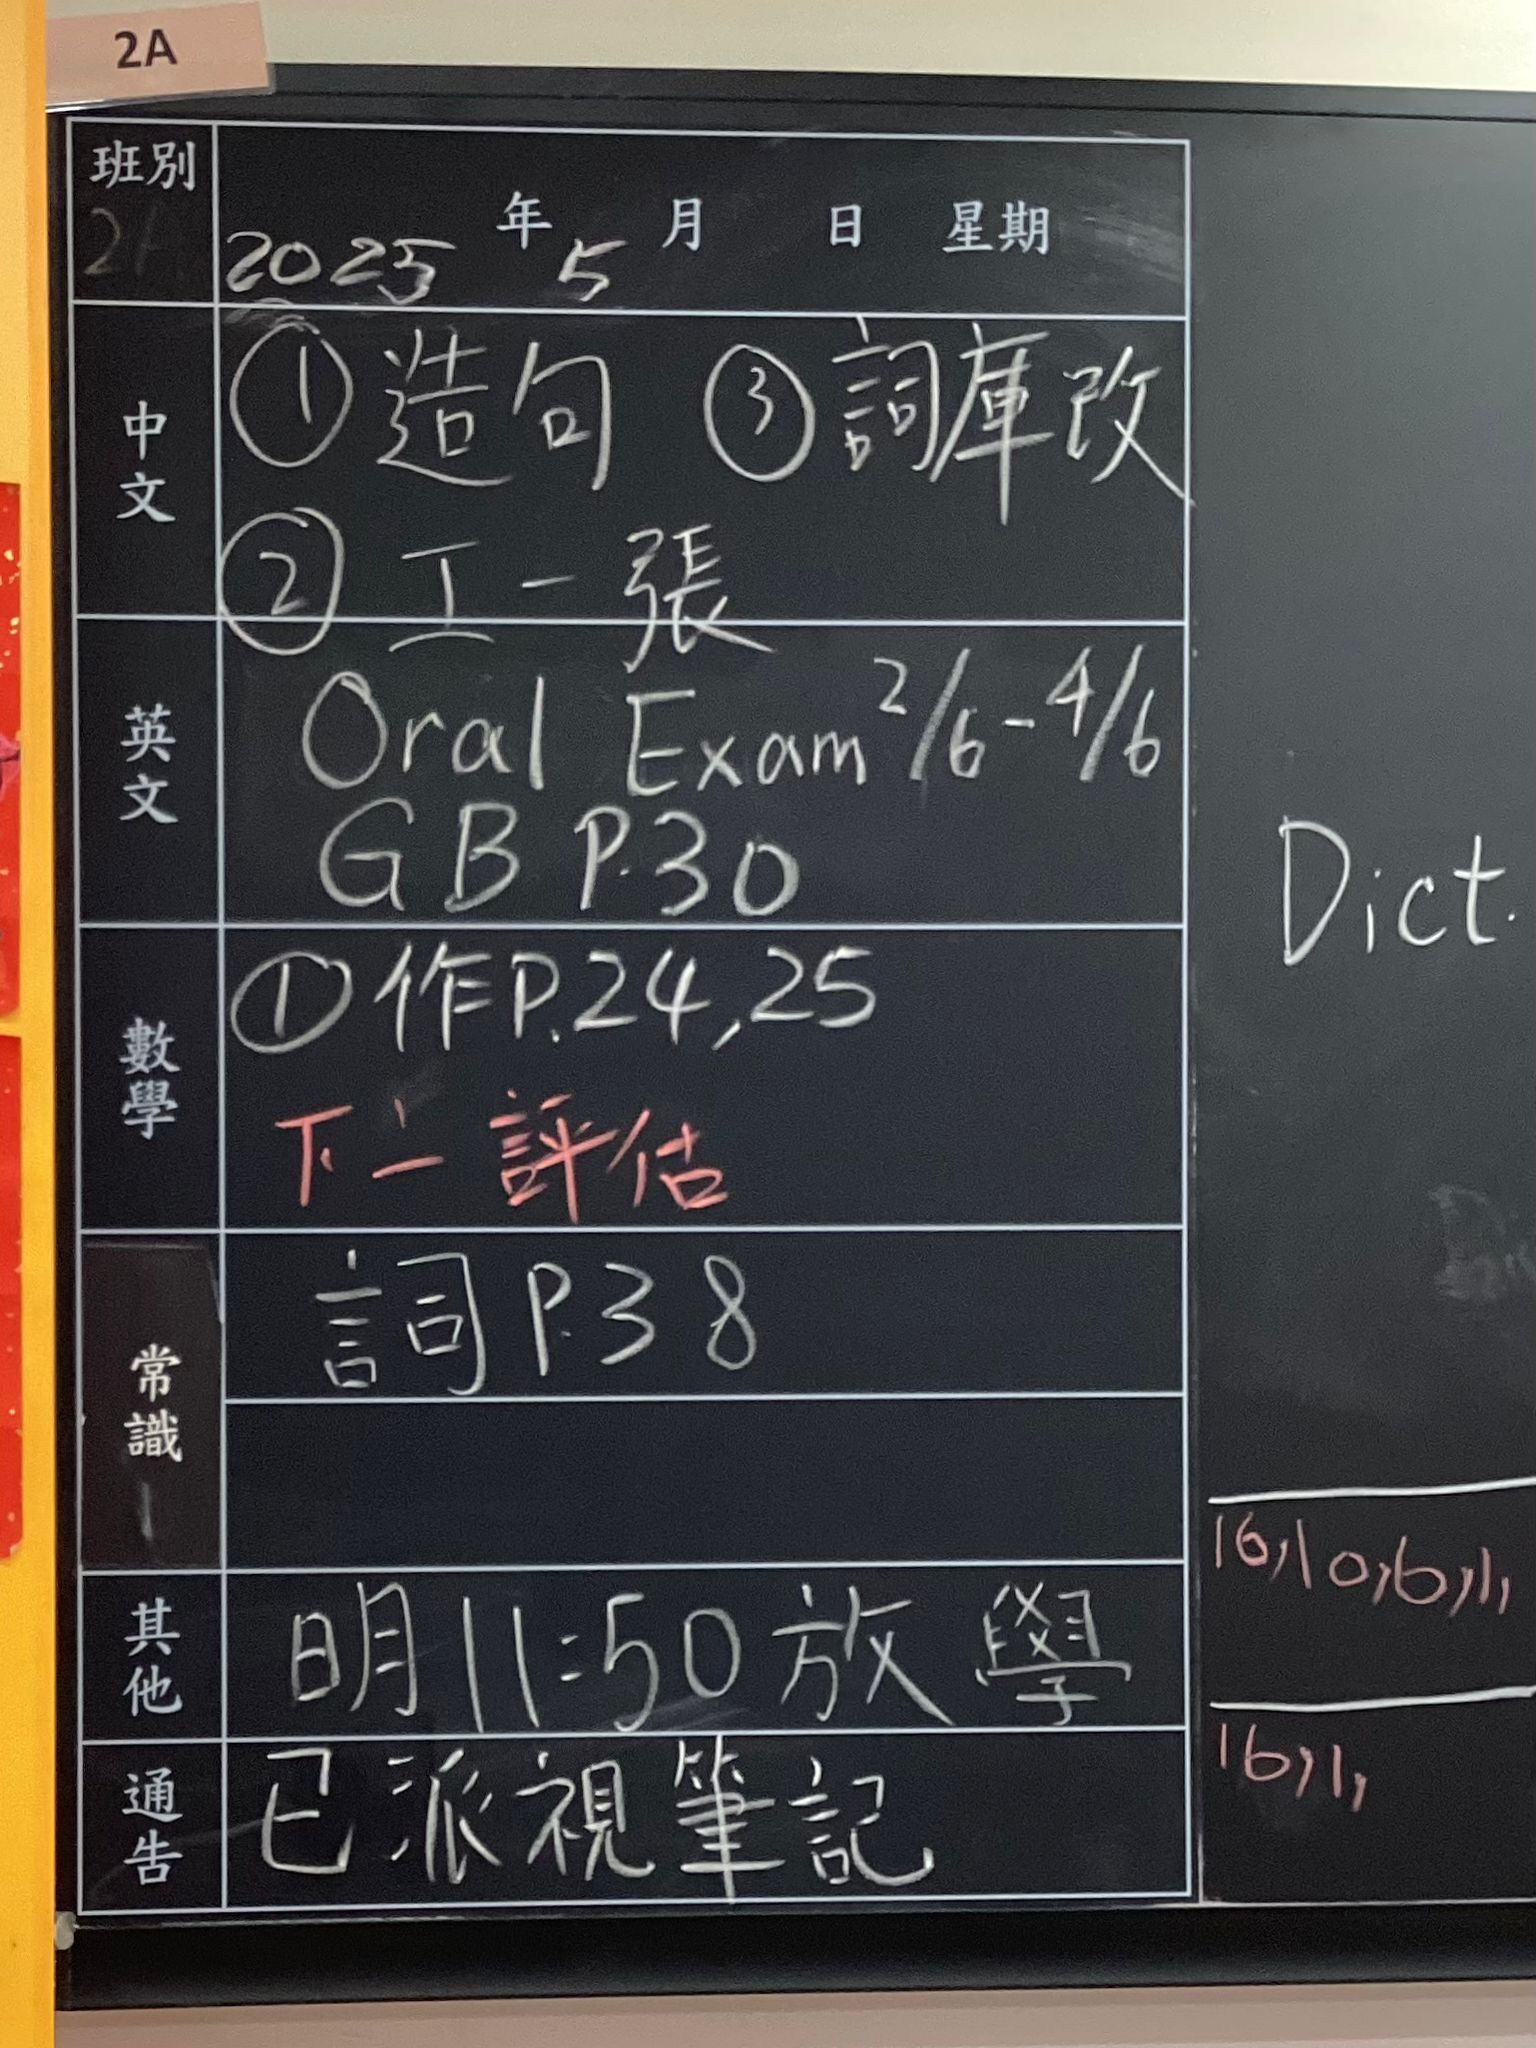 2A
班別
年 月 日 星期
2025 5
中文
①造句 ③詞庫改
②工一張
英文
Oral Exam 2/6-4/6
GB P.30
數學
①作P.24,25
下二評估
常識
詞P.38
其他
明11:50放學
通告
已派視筆記
Dict.
16,10,6,1,
16,1,